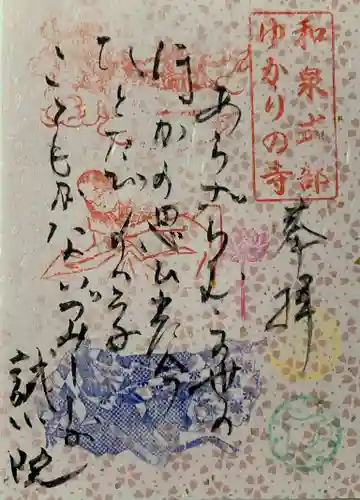 和泉式部
ゆかりの寺
奉拝
あらざらむこの世の
ほかの思ひ出に今
ひとたびの逢ふ
こともがな いづみしきぶ
誠心院